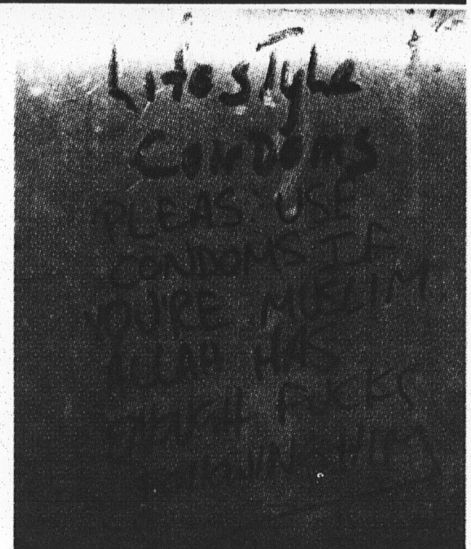 LifeStyle
Condoms
PLEAS USE
CONDOMS IF
YOU'RE MUSLIM.
ALLAH HAS
ENOUGH FUCKS
HIM